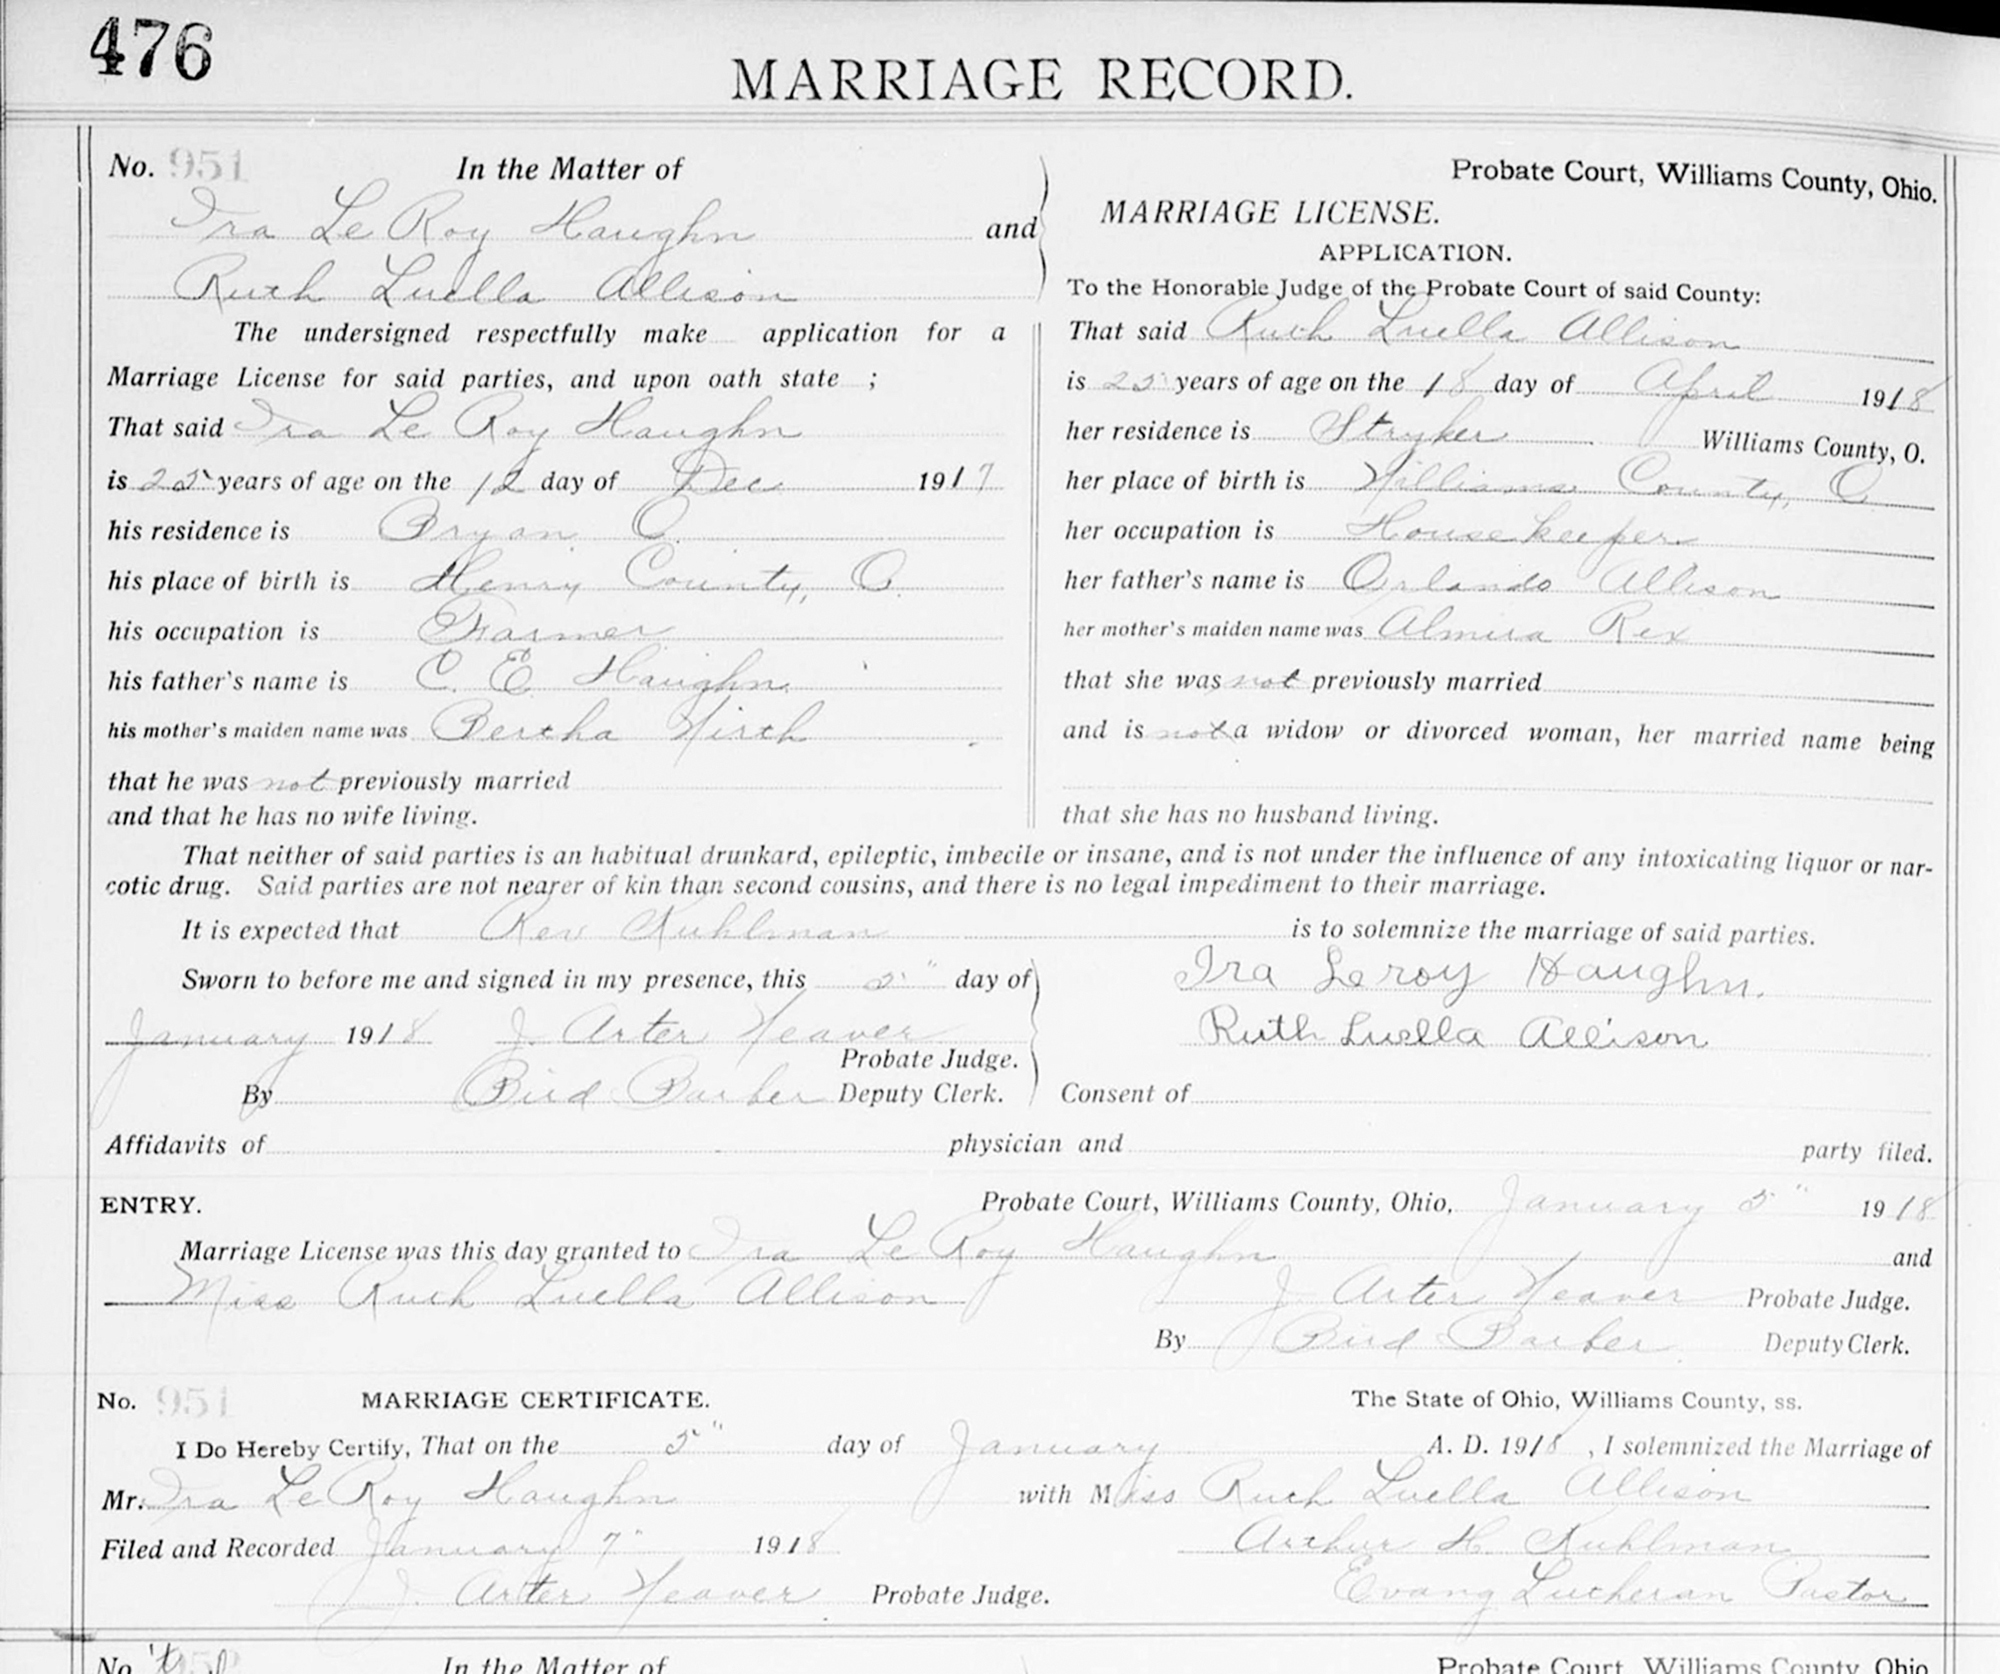 476
MARRIAGE RECORD.
No. 951 In the Matter of
Ira Le Roy Haughn and
Ruth Luella Allison
The undersigned respectfully make application for a
Marriage License for said parties, and upon oath state ;
That said Ira Le Roy Haughn
is 25 years of age on the 12 day of Dec 1917
his residence is Bryan O.
his place of birth is Henry County, O.
his occupation is Farmer
his father's name is C. E. Haughn
his mother's maiden name was Bertha Wirth
that he was not previously married
and that he has no wife living.
Probate Court, Williams County, Ohio.
MARRIAGE LICENSE.
APPLICATION.
To the Honorable Judge of the Probate Court of said County:
That said Ruth Luella Allison
is 25 years of age on the 18 day of April 1918
her residence is Stryker Williams County, O.
her place of birth is Williams County, O
her occupation is Housekeeper
her father's name is Orlando Allison
her mother's maiden name was Almira Rex
that she was not previously married
and is not a widow or divorced woman, her married name being
that she has no husband living.
That neither of said parties is an habitual drunkard, epileptic, imbecile or insane, and is not under the influence of any intoxicating liquor or nar-
cotic drug. Said parties are not nearer of kin than second cousins, and there is no legal impediment to their marriage.
It is expected that Rev Kuhlman is to solemnize the marriage of said parties.
Sworn to before me and signed in my presence, this 5" day of
January 1918 J. Arter Weaver
Probate Judge.
By Bird Barber Deputy Clerk.
Ira Leroy Haughn.
Ruth Luella Allison
Consent of
Affidavits of physician and party filed.
ENTRY. Probate Court, Williams County, Ohio, January 5" 1918
Marriage License was this day granted to Ira Le Roy Haughn and
Miss Ruth Luella Allison J. Arter Weaver Probate Judge.
By Bird Barber Deputy Clerk.
No. 951 MARRIAGE CERTIFICATE. The State of Ohio, Williams County, ss.
I Do Hereby Certify, That on the 5" day of January A. D. 1918 , I solemnized the Marriage of
Mr. Ira Le Roy Haughn with Miss Ruth Luella Allison
Filed and Recorded January 7" 1918 Arthur H. Kuhlman
J. Arter Weaver Probate Judge. Evang Lutheran Pastor
No. 952 In the Matter of Probate Court, Williams County, Ohio